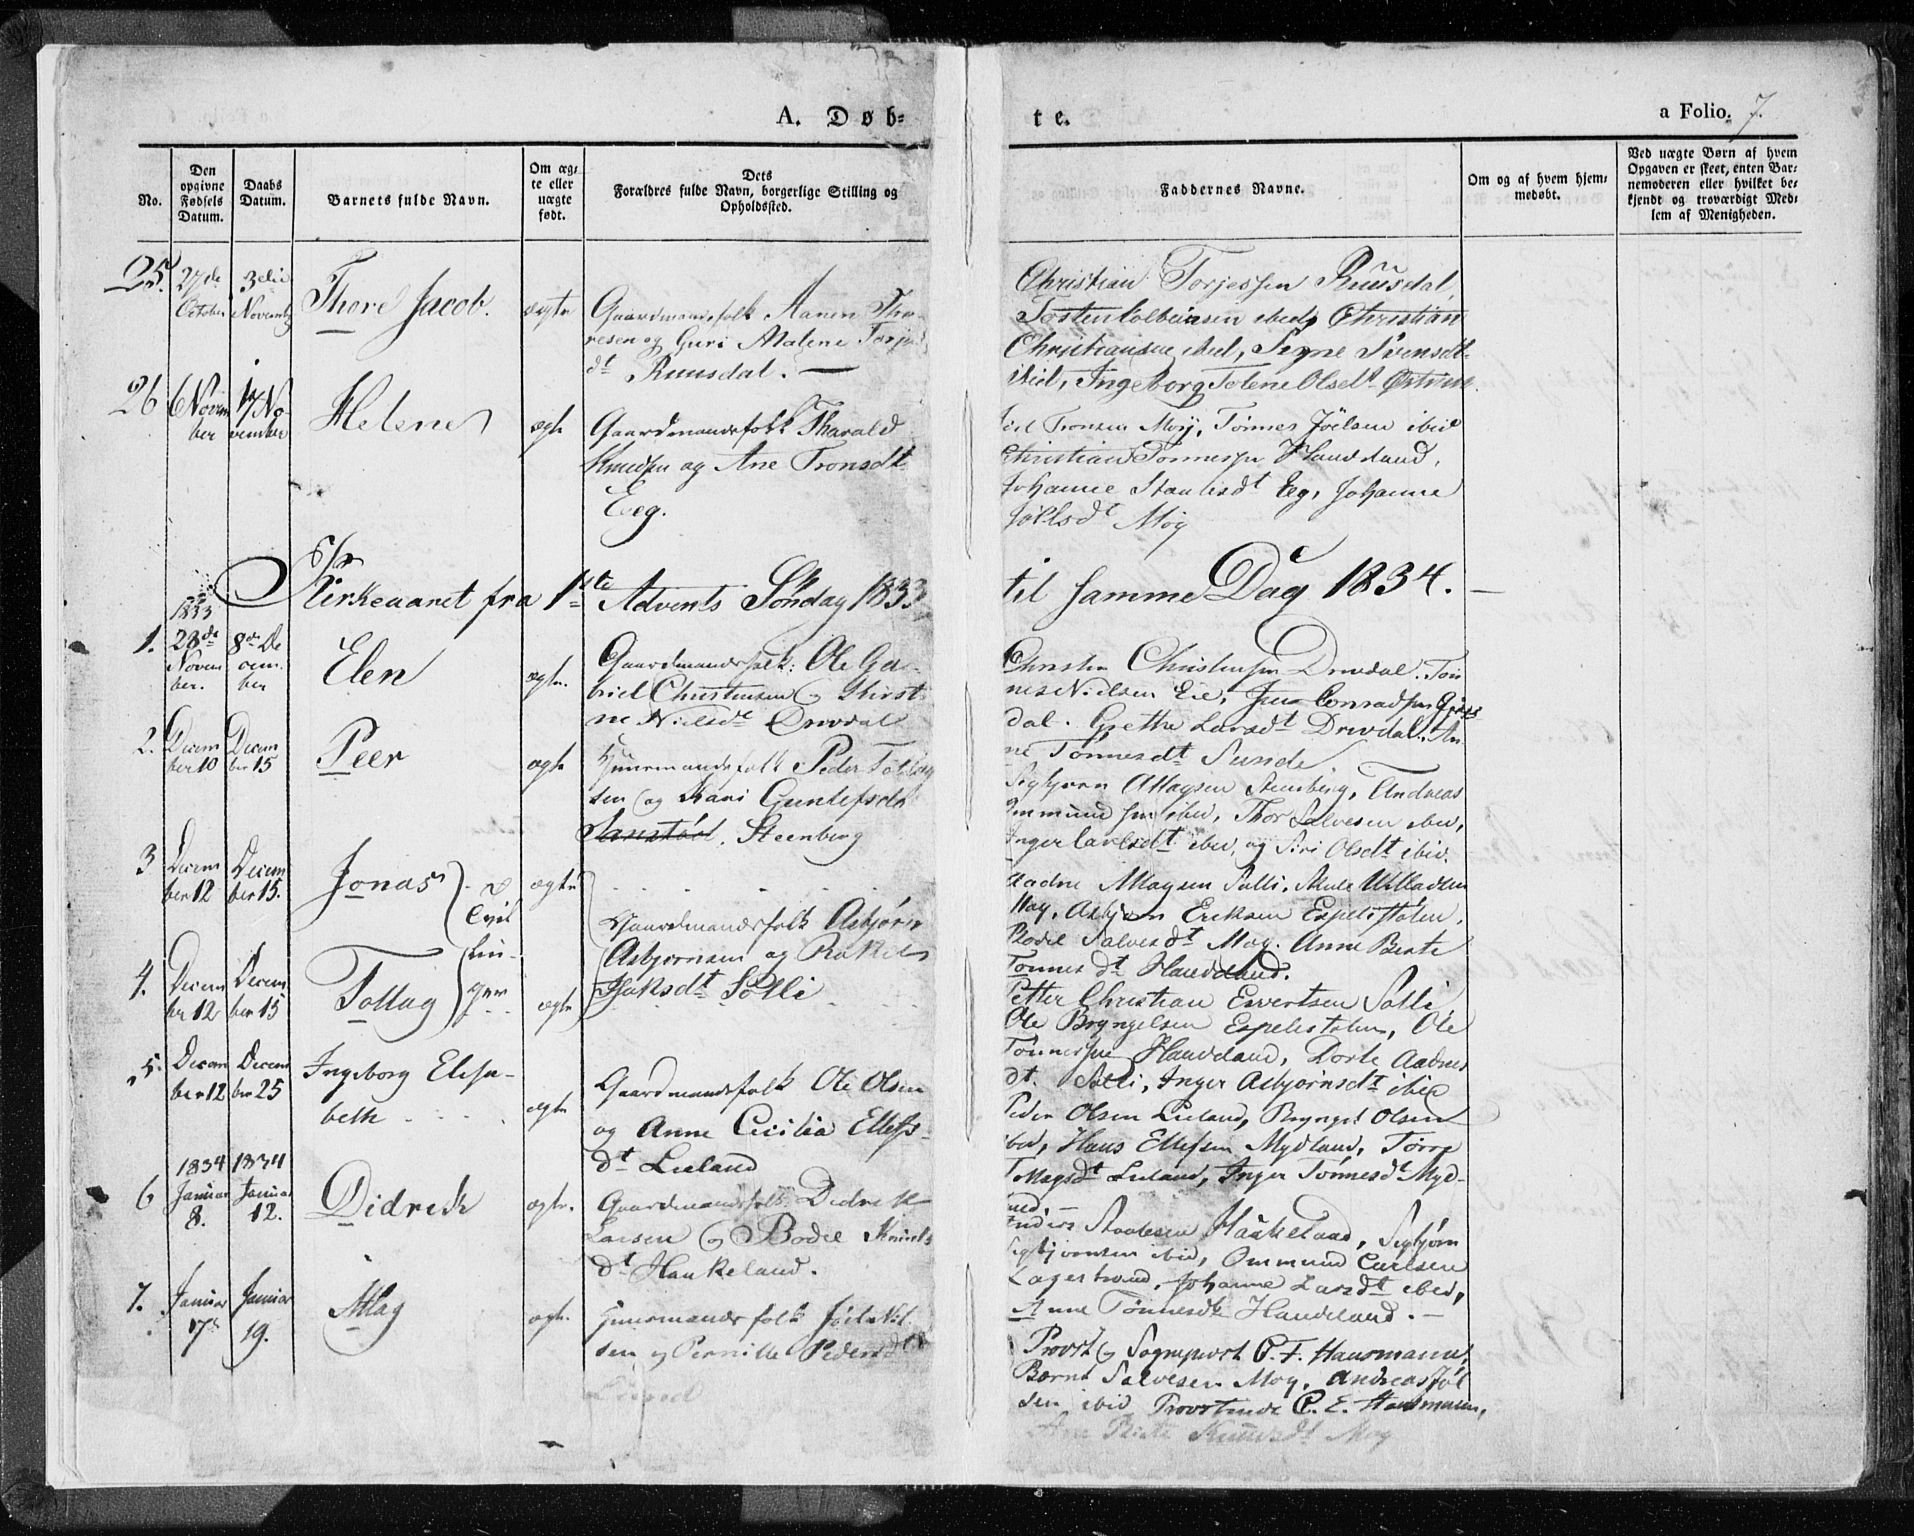 A. Døb-
te.
a Folio. 7.
No.
Den opgivne Fødsels Datum.
Daabs Datum.
Barnets fulde Navn.
Om æg-
te eller
uægte
født.
Dets
Forældres fulde Navn, borgerlige Stilling og
Opholdssted.
Faddernes Navne.
Om og af hvem hjem-
medøbt.
Ved uægte Børn af hvem
Opgaven er skeet, enten Bar-
nemoderen eller hvilket be-
kjendt og troværdigt Med-
lem af Menigheden.
25.
27de October
3die November
Thore Jacob.
ægte
Gaardmandsfolk Aanen Tho-
resen og Guri Malene Torje
dt Ruusdal.
Christian Torjessen Ruusdal,
Tosten ibid, Christian
Christiansen ibid, Signe Svensdt
ibid, Ingeborg Tolene Olsdt
26
6 November
17 November
Helene
ægte
Gaardmandsfolk Tharald
Knudsen og Ane Tronsdt
Eeg.
Tronsen Moy, Tønnes Joelsen ibid
Christian Tønnessen Haudeland,
Johanne dt Eeg, Johanne
dt Moy
Kirkeaaret fra 1ste Advents Søndag 1833
til samme Dag 1834.
1833
1.
28de
Novem
ber.
8de De
cem
ber
Elen
ægte.
Gaardmandsfolk: Ole Ga-
briel Christensen og Kirst
ne Nielsdt Drivdal
Christen Christensen Drivdal. Tøn
nes Nielsen Eie, Jens Conradsen
dal. Grethe Larsdt Drivdal. An-
ne Tønnesdt Sunde
2.
Decem
ber 10
Decem
ber 15
Peer
ægte
Huusmandsfolk Peder Tollag
sen og Kari Guntefsdt
Steenberg
Sigbjørn Atlagsen Steenberg, Andreas
Ommundsen ibid, Thor Salvesen ibid,
Inger Carlsdt ibid, og Siri Olsdt ibid.
3
Decem
ber 12
Decem
ber 15.
Jonas
ægte
Tvil
lin-
ger
Gaardmandsfolk Asbjørn
Asbjørnsen og Rakel
Isaksdt Solli
Aadne Atlagsen Solli,
Moy, Asbjørn Eriksen Espelistølen,
Bodil Salvesdt Moy. Anne Berte
Tønnesdt Haudeland.
4.
Decem
ber 12
Decem
ber 15
Tollag
ægte
Petter Christian Evertsen Solli,
Ole Bryngelsen Espelistølen, Ole
Tønnessen Haudeland, Dorte Aadnes
dt. Solli, Inger Asbjørnsdt ibid
5.
Decem
ber 12
Decem
ber 25
Ingeborg Elisa-
beth
ægte
Gaardmandsfolk Ole Olsen
og Anne Cecilia Ellefs-
dt Lieland
Peder Olsen Lieland, Bryngel Olsen
ibid, Hans Ellefsen Mydland, Tørre
Tollagsdt Lieland, Inger Tønnesdt Myd-
land.
1834 1834
6
Januar
8.
Januar
12.
Didrik
ægte.
Gaardmandsfolk Didrik
Larsen og Bodil
dt Haukeland.
Anders Staalesen Haukeland, Sigbjørn
Sigbjørnsen ibid, Ommund Carlsen
Lagestrand, Johanne Larsdt ibid,
Anne Tønnesdt Haudeland.
7.
Januar
7de
Januar
19.
Atlag
ægte.
Huusmandsfolk Joel Nil
sen og Pernille Pedersdt
Provst og Sognepræst P. F. Hausmann,
Salvesen Moy, Andreas Joel
sen ibid Provstinde C. E. Hausmann,
Ane Berte dt Moy